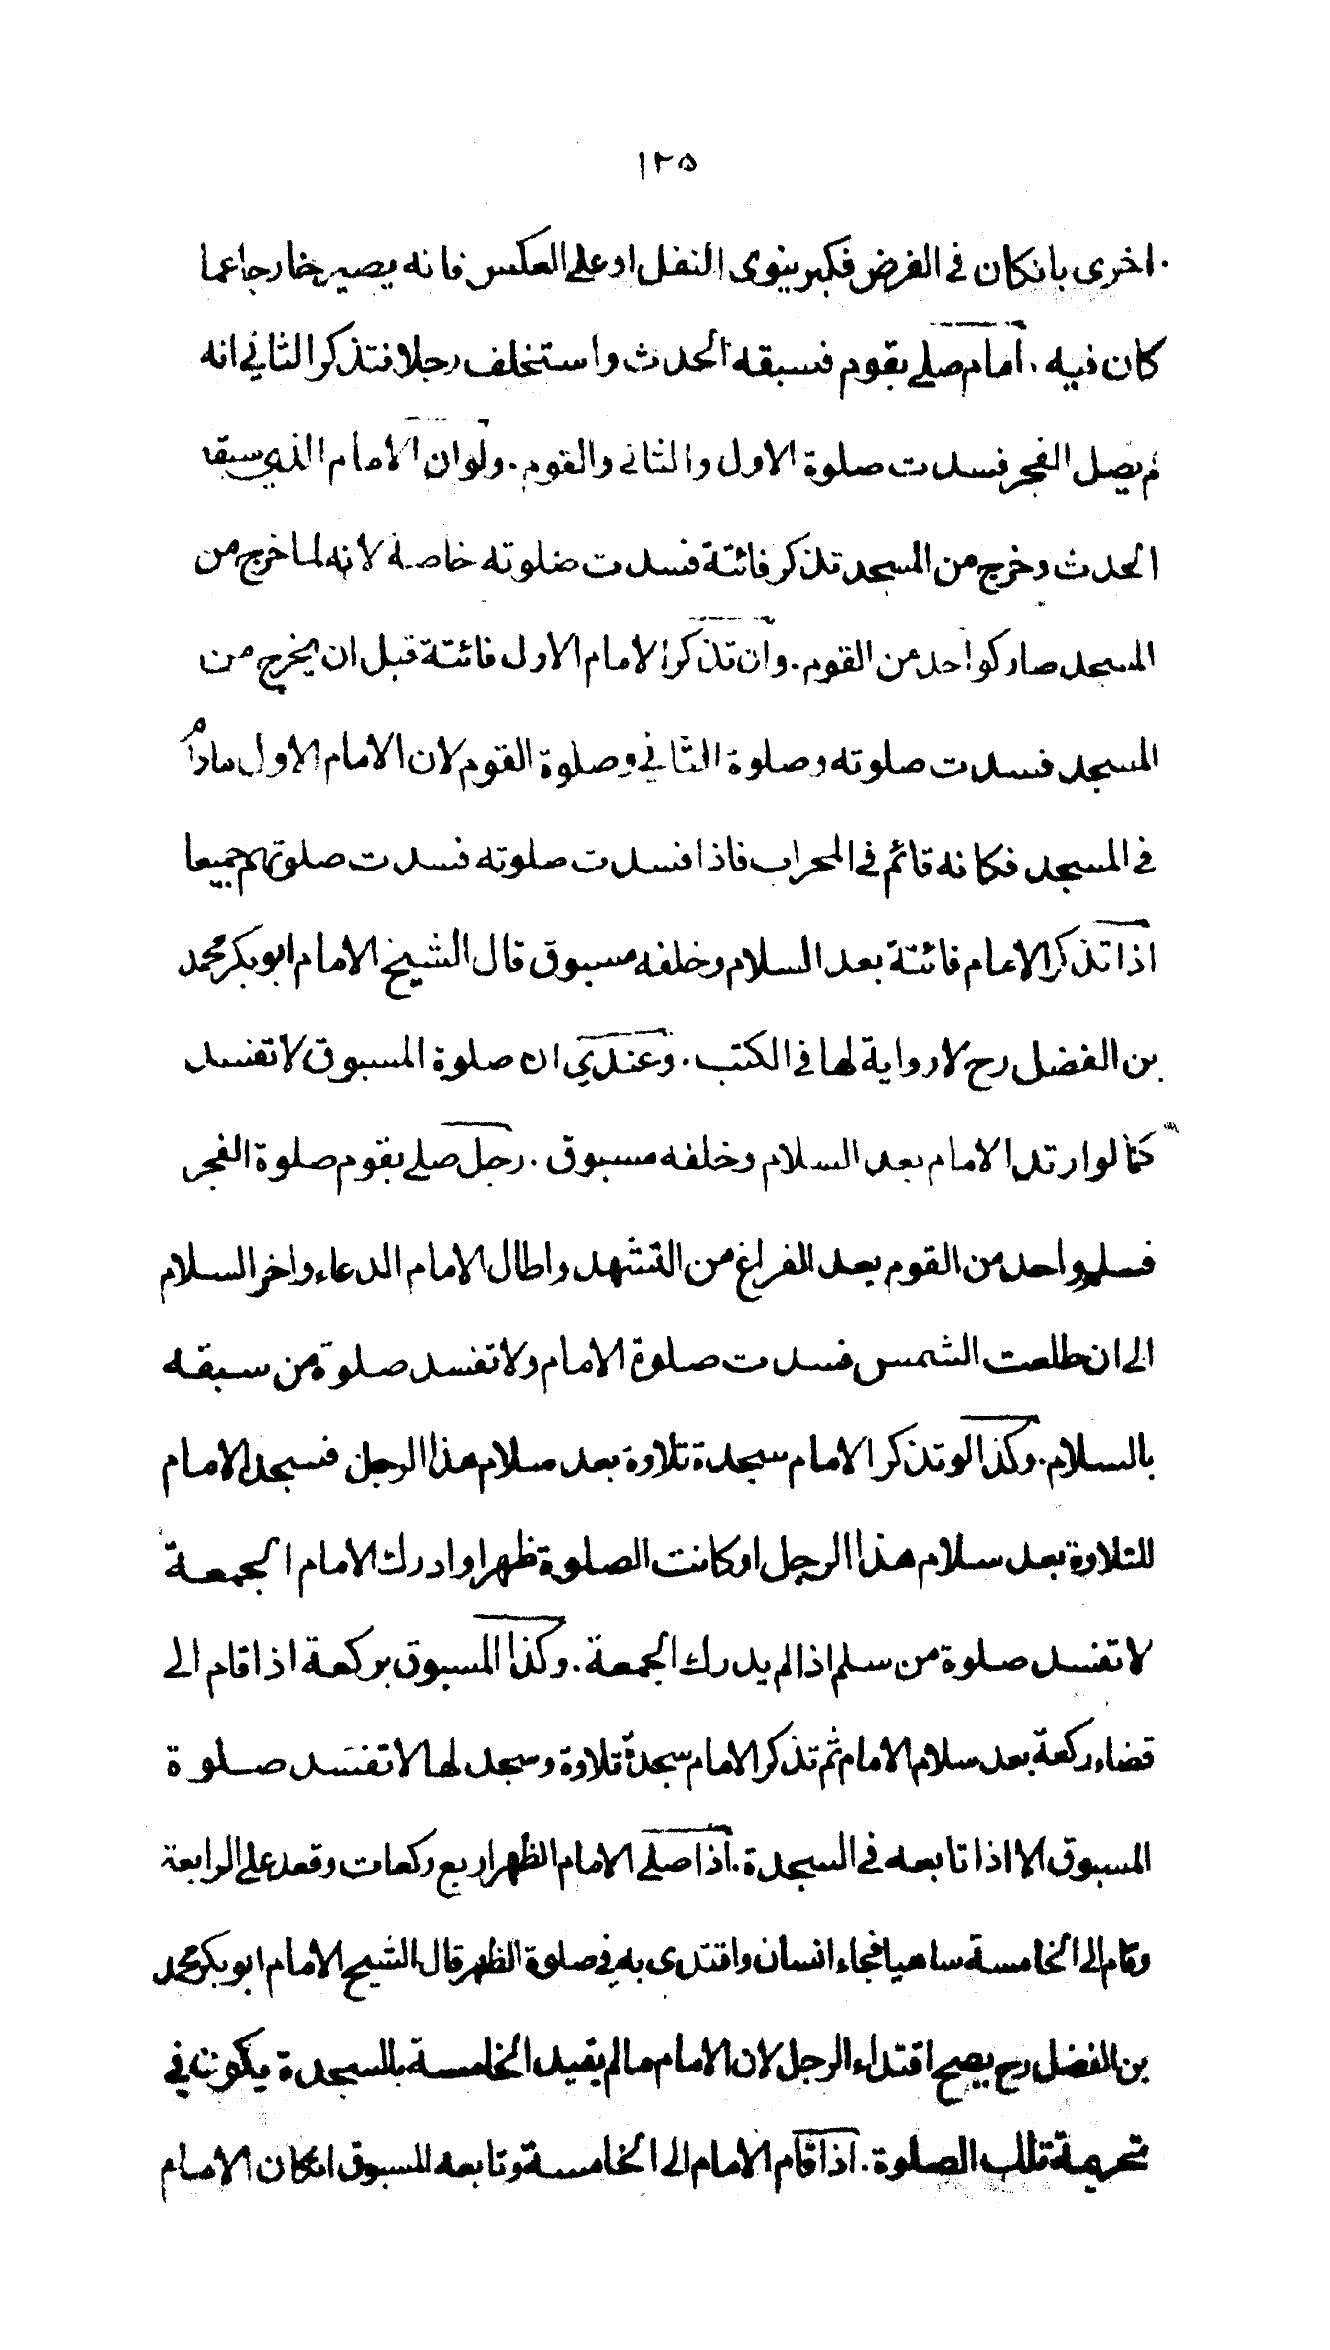 ١٢٥
اخرى بانكان في الفرض فكبر ينوى النفل او على العكس فانه يصير خارجا عما
كان فيه . امام صلے بقوم فسبقه الحدث واستخلف رجلا فتذكر الثاني انه
لم يصل الفجر فسدت صلوة الاول والثانى والقوم . ولو ان الامام الذي سبقه
الحدث وخرج من المسجد تذكر فائتة فسدت صلوته خاصة لانه لما خرج من
المسجد صار كواحد من القوم . وان تذكر الامام الاول فائتة قبل ان يخرج من
المسجد فسدت صلوته وصلوة الثاني وصلوة القوم لان الامام الاول مادام
في المسجد فكانه قائم في المحراب فاذا فسدت صلوته فسدت صلوتهم جميعا
اذا تذكر الامام فائتة بعد السلام وخلفه مسبوق قال الشيخ الامام ابو بكر محمد
بن الفضل رح لا رواية لها في الكتب . وعندي ان صلوة المسبوق لا تفسد
كما لو ارتد الامام بعد السلام وخلفه مسبوق . رجل صلے بقوم صلوة الفجر
فسلم واحد من القوم بعد الفراغ من التشهد واطال الامام الدعاء واخر السلام
الى ان طلعت الشمس فسدت صلوة الامام ولا تفسد صلوة من سبقه
بالسلام . وكذا لو تذكر الامام سجدة تلاوة بعد سلام هذا الرجل فسجد الامام
للتلاوة بعد سلام هذا الرجل او كانت الصلوة ظهرا وادرك الامام الجمعة
لا تفسد صلوة من سلم اذا لم يدرك الجمعة . وكذا المسبوق بركعة اذا قام الى
قضاء ركعة بعد سلام الامام ثم تذكر الامام سجدة تلاوة وسجد لها لا تفسد صلوة
المسبوق الا اذا تابعه في السجدة . اذا صلے الامام الظهر اربع ركعات وقعد على الرابعة
وقام الى الخامسة ساهيا فجاء انسان واقتدى به في صلوة الظهر قال الشيخ الامام ابو بكر محمد
بن الفضل رح يصح اقتداء الرجل لان الامام ما لم يقيد الخامسة بالسجدة يكون في
تحريمة تلك الصلوة . اذا قام الامام الى الخامسة وتابعه المسبوق انكان الامام